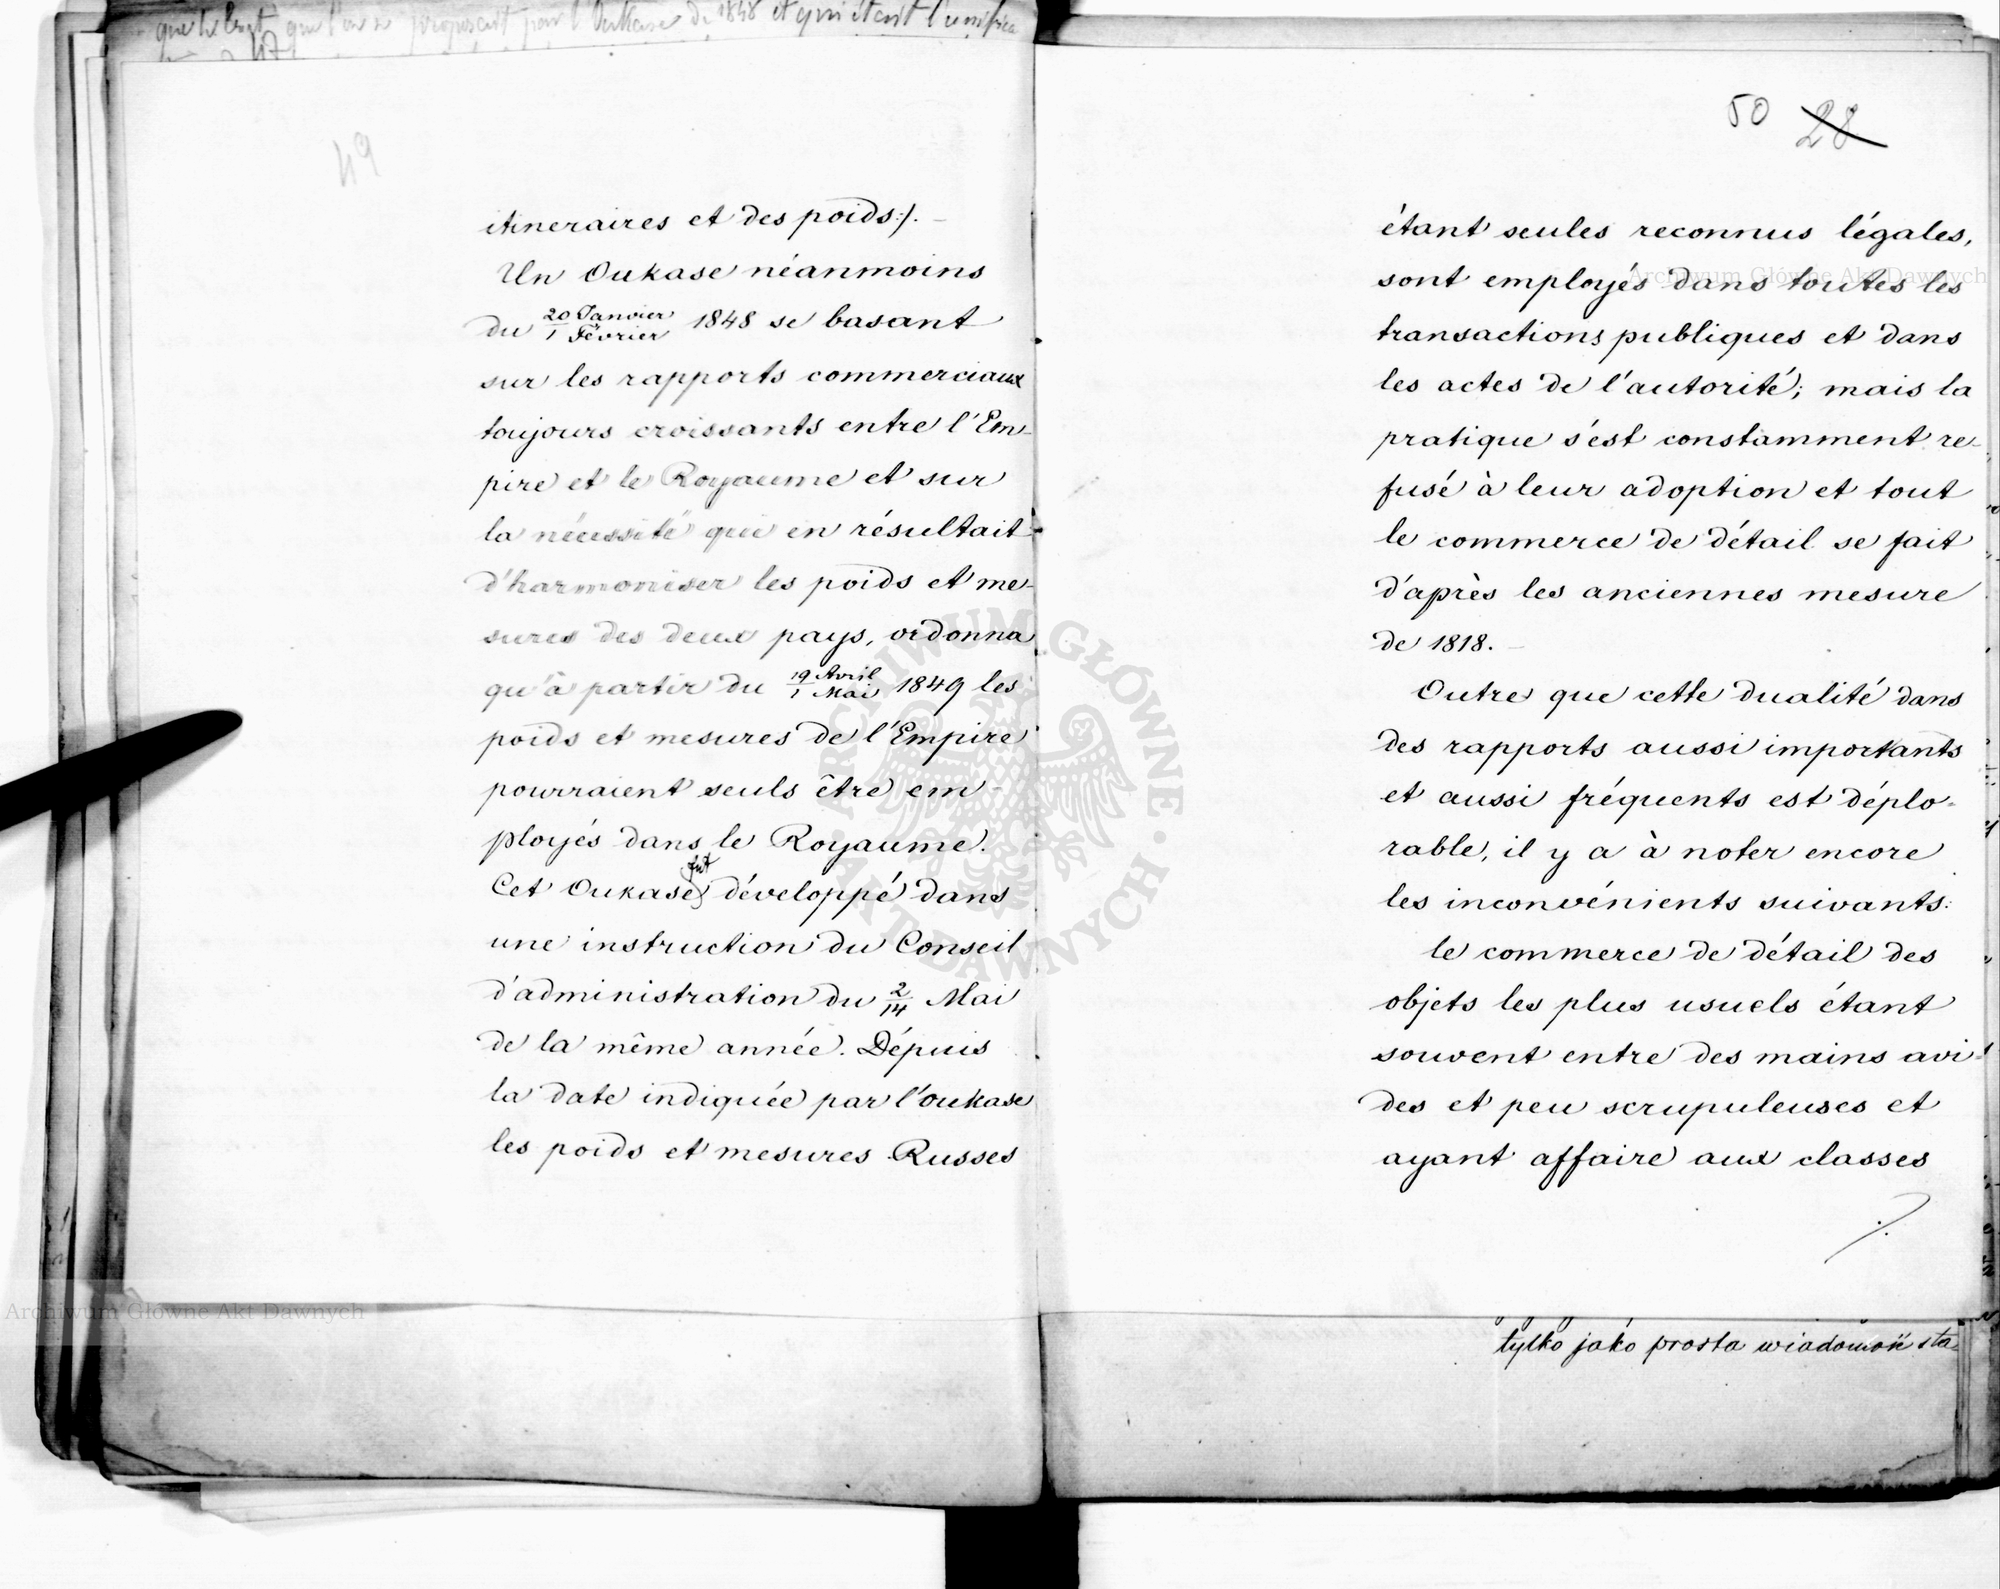 que l'on se proposait par l'Oukase de 1848 et qui était l'unifica
47
49
itineraires et des poids:/.
Un Oukase néanmoins
du 20 Janvier / 1 Février 1848 se basant
sur les rapports commerciaux
toujours croissants entre l'Em-
pire et le Royaume et sur
la nécessité qui en résultait
d'harmoniser les poids et me-
sures des deux pays, ordonna
qu'à partir du 19 Avril / 1 Mai 1849 les
poids et mesures de l'Empire
pourraient seuls être em-
ployés dans le Royaume.
fut
Cet Oukase développé dans
une instruction du Conseil
d'administration du 2/14 Mai
de la même année. Dépuis
la date indiquée par l'oukase
les poids et mesures Russes
50 28
étant seules reconnus légales,
sont employés dans toutes les
transactions publiques et dans
les actes de l'autorité; mais la
pratique s'est constamment re-
fusé à leur adoption et tout
le commerce de détail se fait
d'après les anciennes mesure
de 1818.
Outre que cette dualité dans
des rapports aussi importants
et aussi fréquents est déplo-
rable, il y a à noter encore
les inconvénients suivants:
le commerce de détail des
objets les plus usuels étant
souvent entre des mains avi-
des et peu scrupuleuses et
ayant affaire aux classes
./.
tylko jako prosta wiadomość sta-
Archiwum Główne Akt Dawnych
Archiwum Główne Akt Dawnych
ARCHIWUM GŁÓWNE · AKT DAWNYCH ·